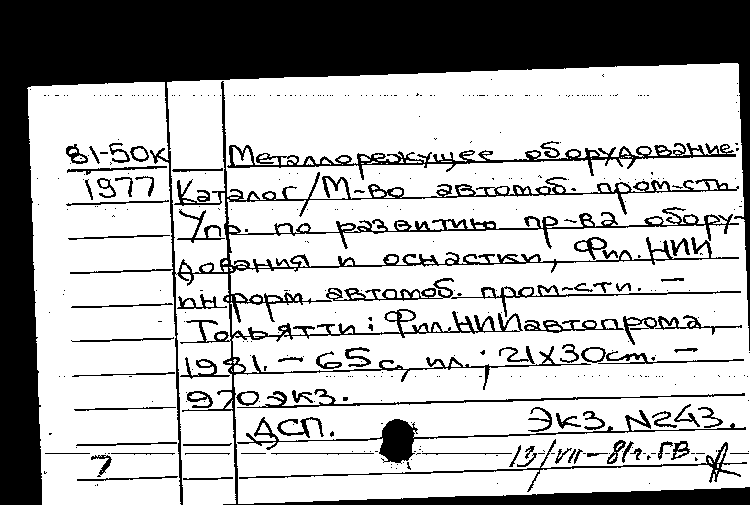 81-50к Металлорежущее оборудование:
1977 Каталог/М-во автомоб. пром-сти
Упр. по развитию пр-ва обору-
дования и оснастки, Фил. НИИ
информ. автомоб. пром-сти. —
Тольятти: Фил. НИИавтопрома,
1981. — 65 с., ил.; 21х30 cm. —
970 экз.
ДСП. Экз. N243.
7 13/VII - 81г. ГВ.